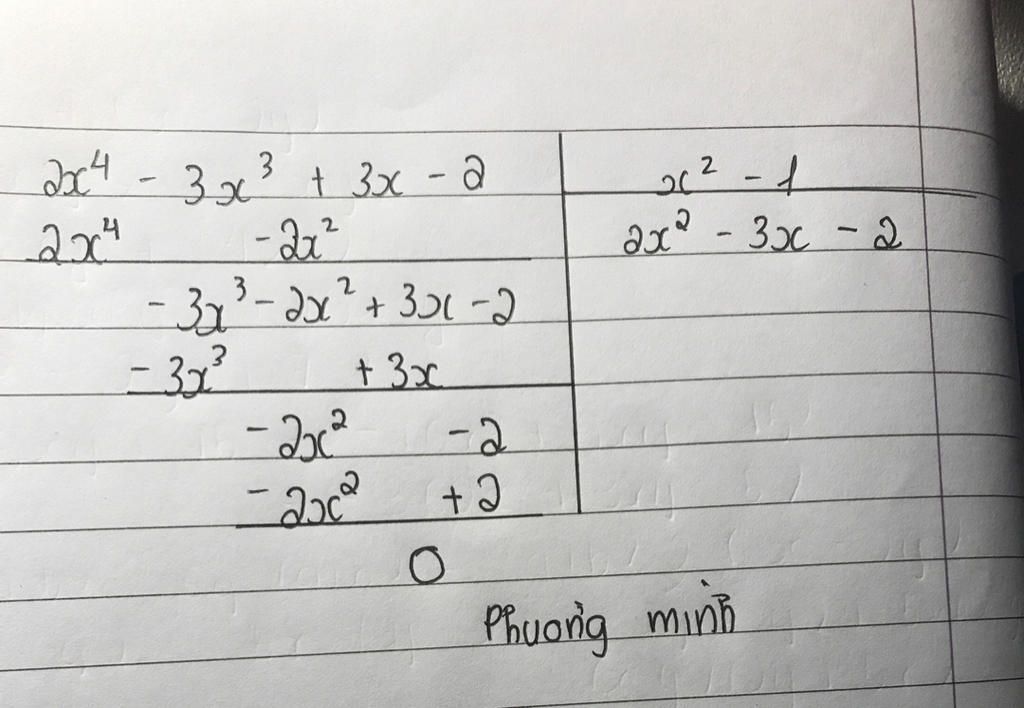 2x⁴ - 3x³ + 3x - 2 x² - 1
2x⁴ - 2x² 2x² - 3x - 2
- 3x³ - 2x² + 3x - 2
- 3x³ + 3x
- 2x² - 2
- 2x² + 2
0
Phuong minh